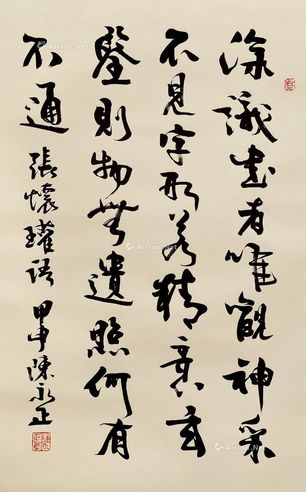 深識書者唯觀神采
不見字形若精意玄
鑒則物無遺照何有
不通 張懷瓘語 甲申陳永正
Artron.Net